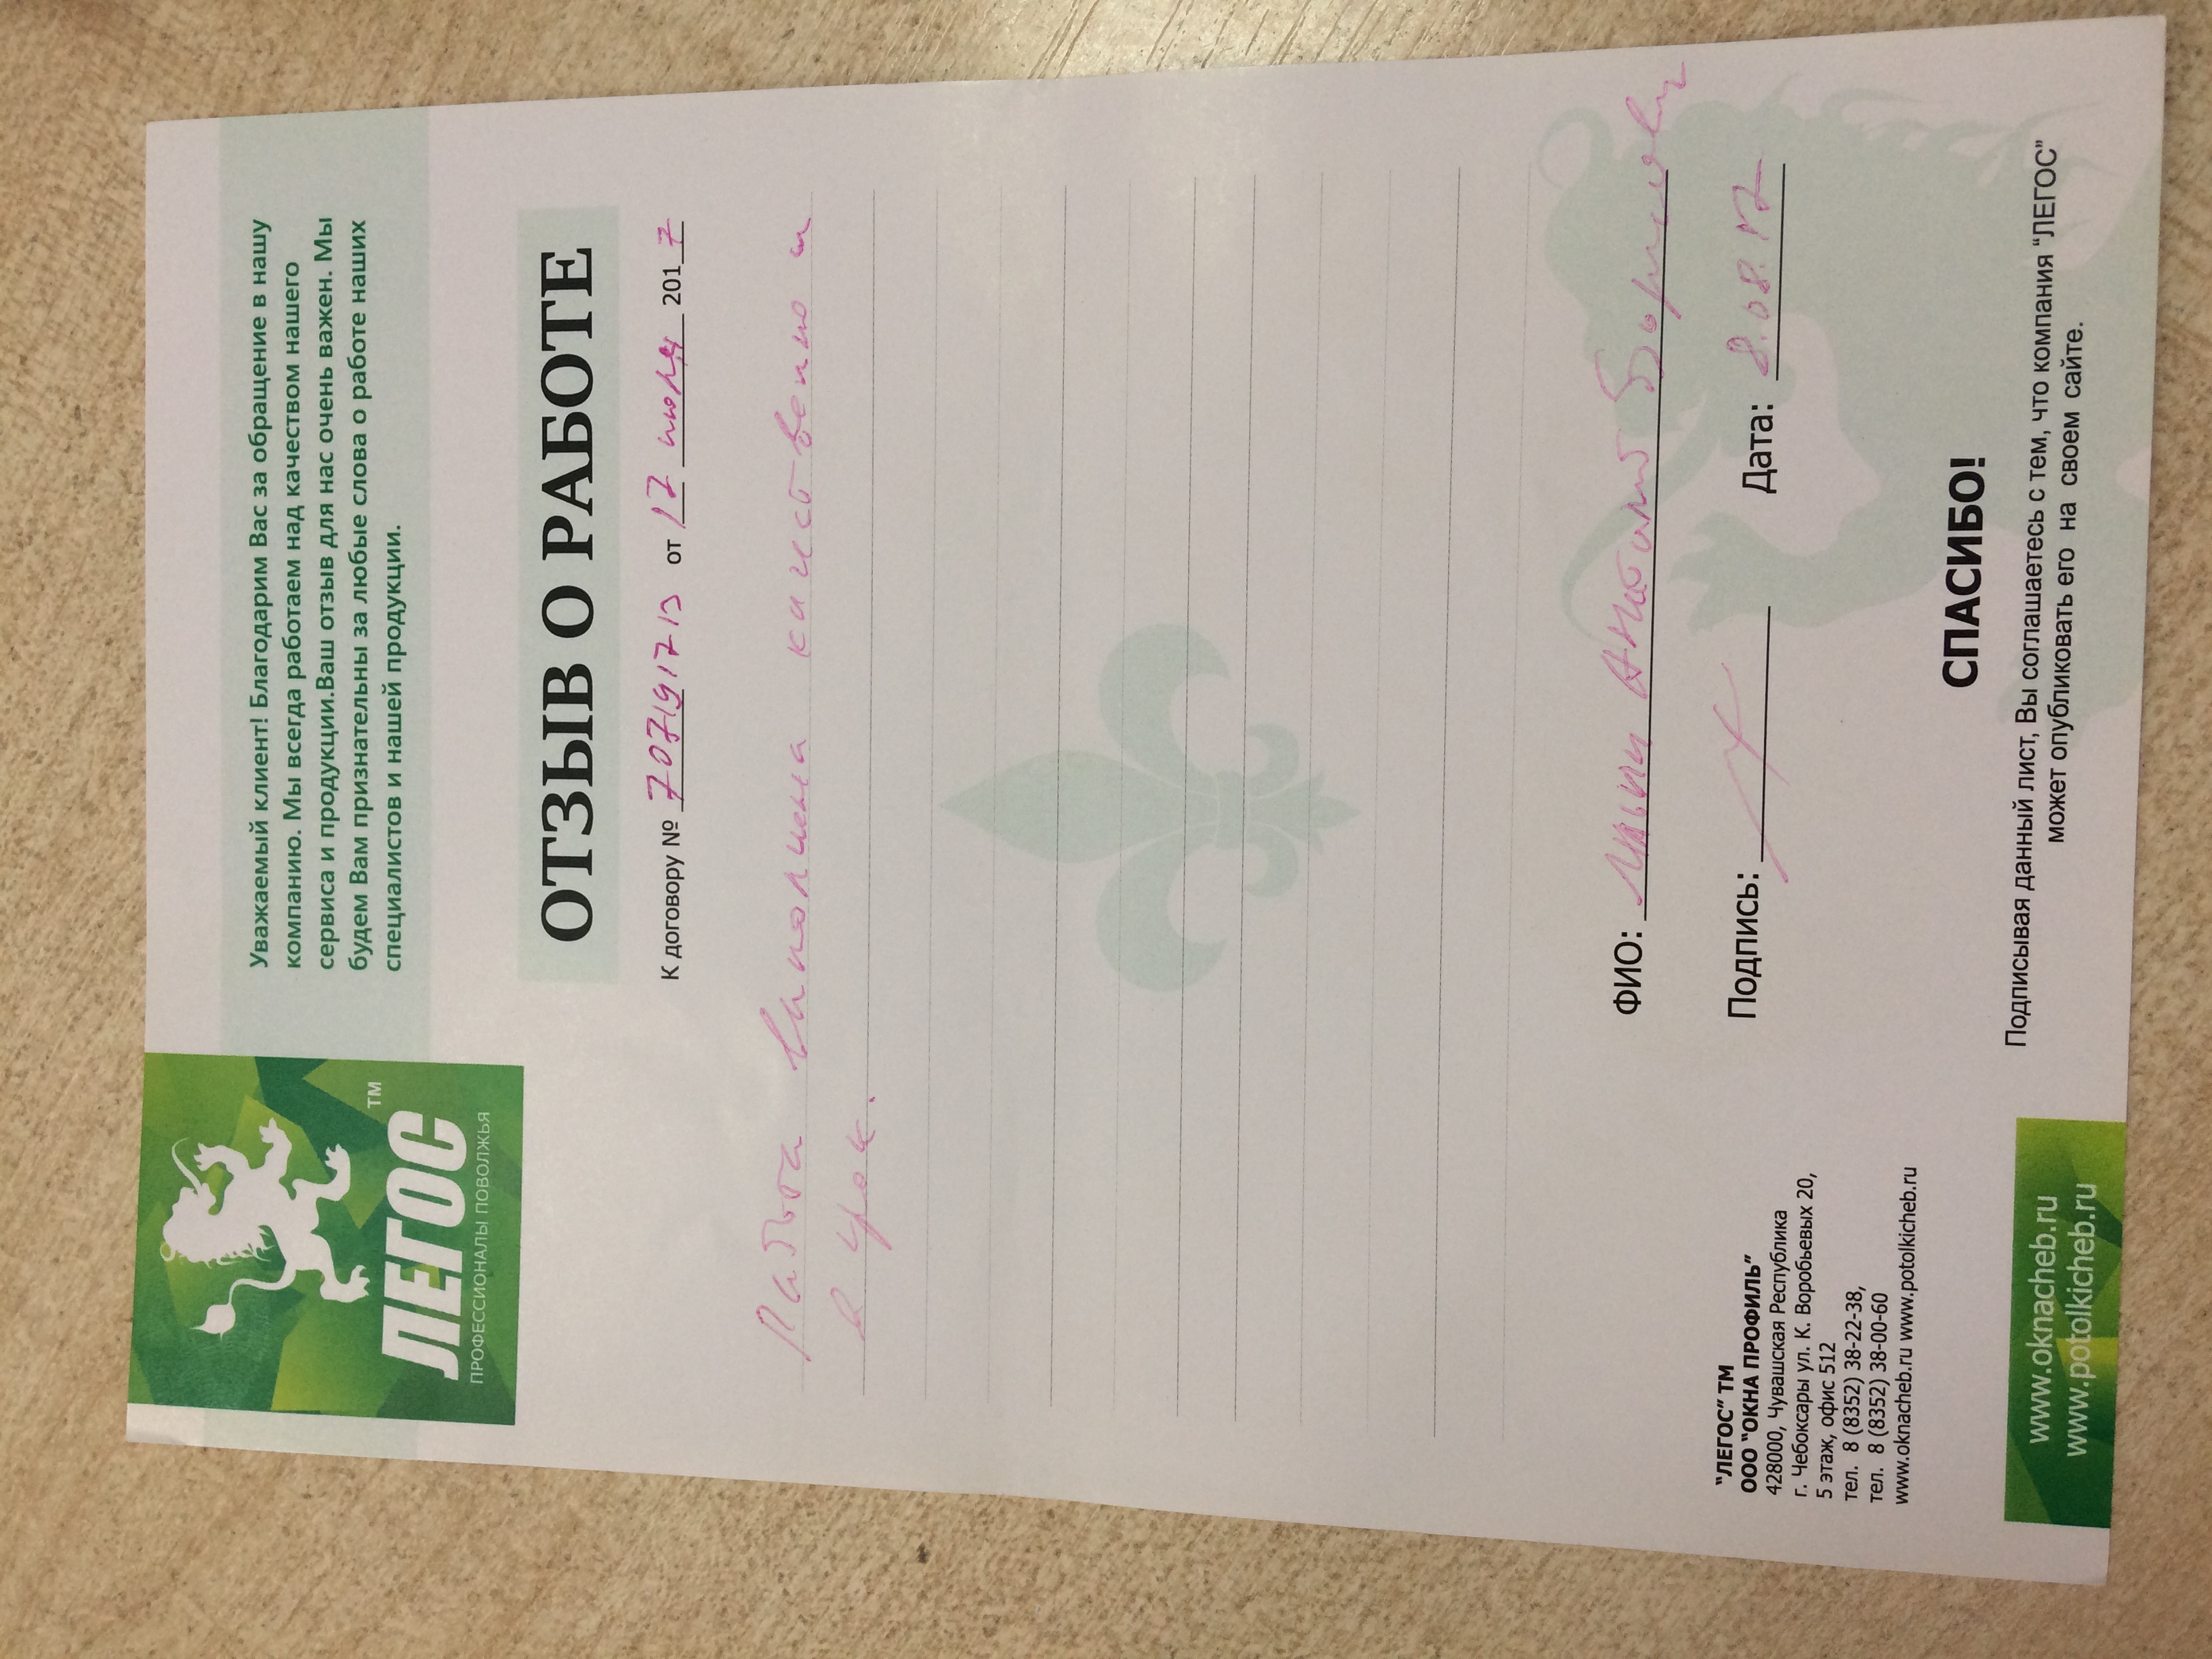 ЛЕГОС ™
ПРОФЕССИОНАЛЫ ПОВОЛЖЬЯ
Уважаемый клиент! Благодарим Вас за обращение в нашу
компанию. Мы всегда работаем над качеством нашего
сервиса и продукции.Ваш отзыв для нас очень важен. Мы
будем Вам признательны за любые слова о работе наших
специалистов и нашей продукции.
ОТЗЫВ О РАБОТЕ
К договору № от 17 июля 2017
Работа выполнена качественно и
в срок.
ФИО: Ильин Анатолий Борисович
Подпись: Дата: 8.08.17
"ЛЕГОС" ТМ
ООО "ОКНА ПРОФИЛЬ"
428000, Чувашская Республика
г. Чебоксары ул. К. Воробьевых 20,
5 этаж, офис 512
тел. 8 (8352) 38-22-38,
тел. 8 (8352) 38-00-60
www.oknacheb.ru www.potolkicheb.ru
СПАСИБО!
Подписывая данный лист, Вы соглашаетесь с тем, что компания "ЛЕГОС"
может опубликовать его на своем сайте.
www.oknacheb.ru
www.potolkicheb.ru